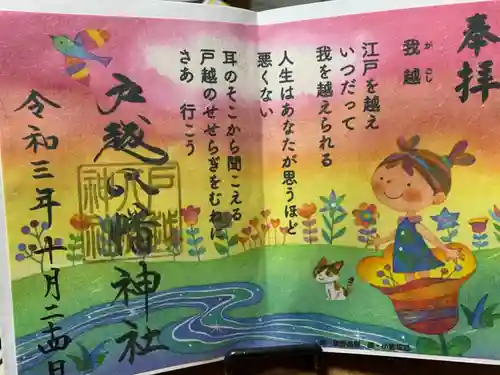 奉拝
我越
がごし
江戸を越え
いつだって
我を越えられる
人生はあなたが思うほど
悪くない
耳のそこから聞こえる
戸越のせせらぎをむねに
さあ 行こう
戸越八幡神社
令和三年十月二十四日